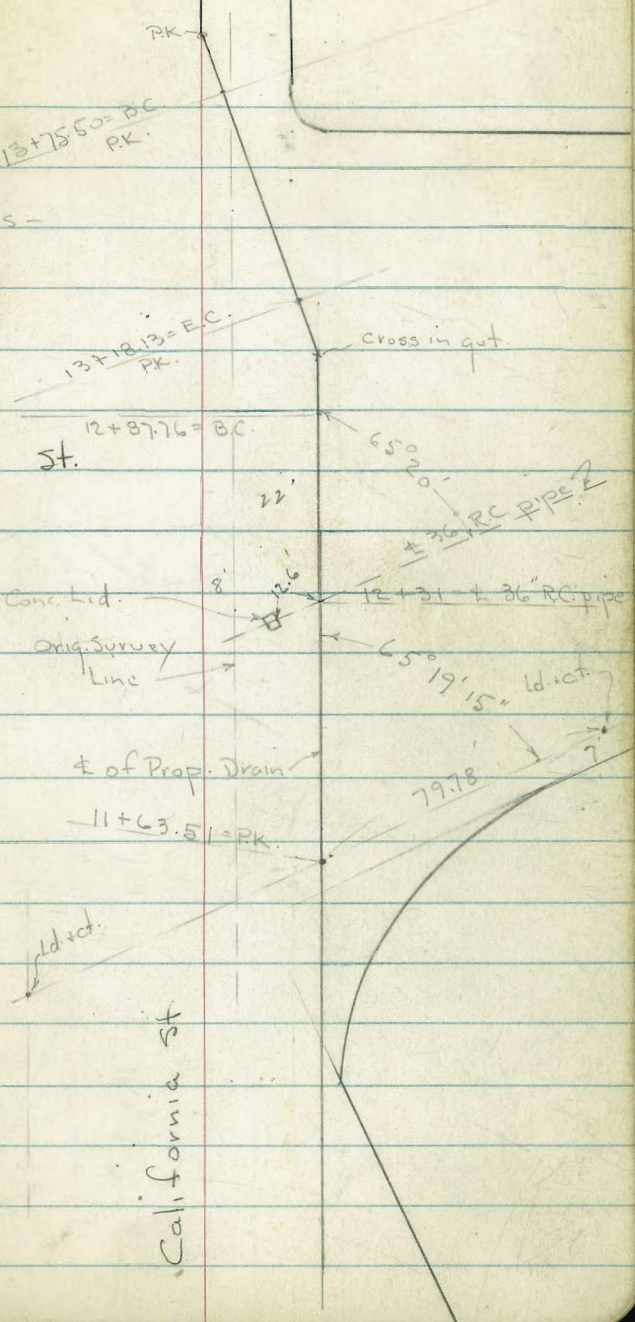 P.K.
13+75.50=B.C.
P.K.
s-
13+18.13=E.C.
P.K.
Cross in gut
12+87.76=B.C.
St.
65° 20'
22'
℄ 36" R.C. pipe
8'
12.6'
Conc. Lid.
12+31=℄ 36" R.C. pipe
Orig. Survey
Line
65° 19' 15"
Ld.+ct.
7'
℄ of Prop. Drain
79.78
11+63.51=P.K.
Ld.+ct.
California St